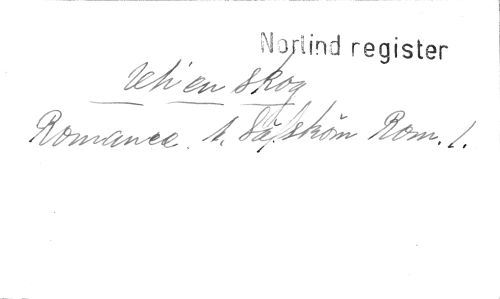 Norlind register
Uti en skog
Romance. t. Så skön Rom. 1.